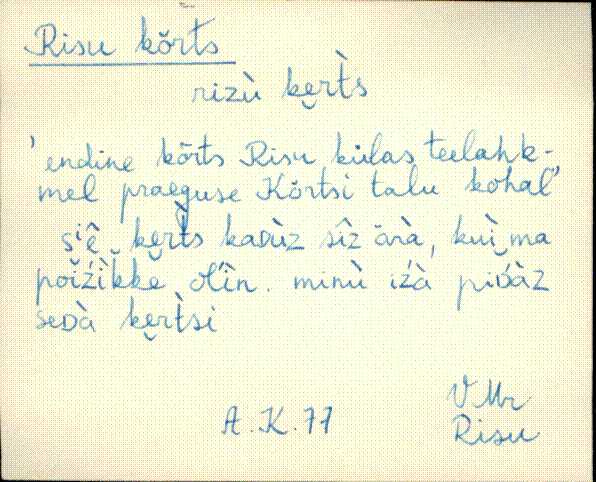 Risu kõrts
rizù ke̮rt̀s
'endine kõrts Risu külas teelahk-
mel praeguse Kõrtsi talu kohal'
si̬ê ke̮rt̀s kaᴅùz sîz ärà, kuì ma
põiźìkkе̮ oĺìn. minù iźà piᴅàz
seᴅà ke̮rt̀si
A.K. 77
VMr
Risu